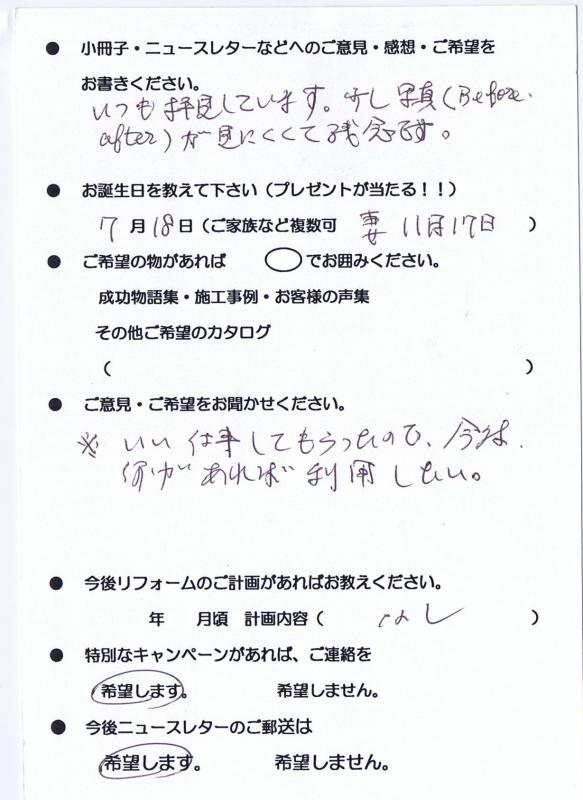 ● 小冊子・ニュースレターなどへのご意見・感想・ご希望を
お書きください。
いつも拝見しています。少し写真(Before.
after)が見にくくて残念です。
● お誕生日を教えて下さい（プレゼントが当たる！！）
7月18日（ご家族など複数可 妻 11月17日 ）
● ご希望の物があれば ◯でお囲みください。
成功物語集・施工事例・お客様の声集
その他ご希望のカタログ
（ ）
● ご意見・ご希望をお聞かせください。
※ いい仕事してもらったので、今後は
何かあれば利用したい。
● 今後リフォームのご計画があればお教えください。
年 月頃 計画内容（ なし ）
● 特別なキャンペーンがあれば、ご連絡を
希望します。 希望しません。
● 今後ニュースレターのご郵送は
希望します。 希望しません。